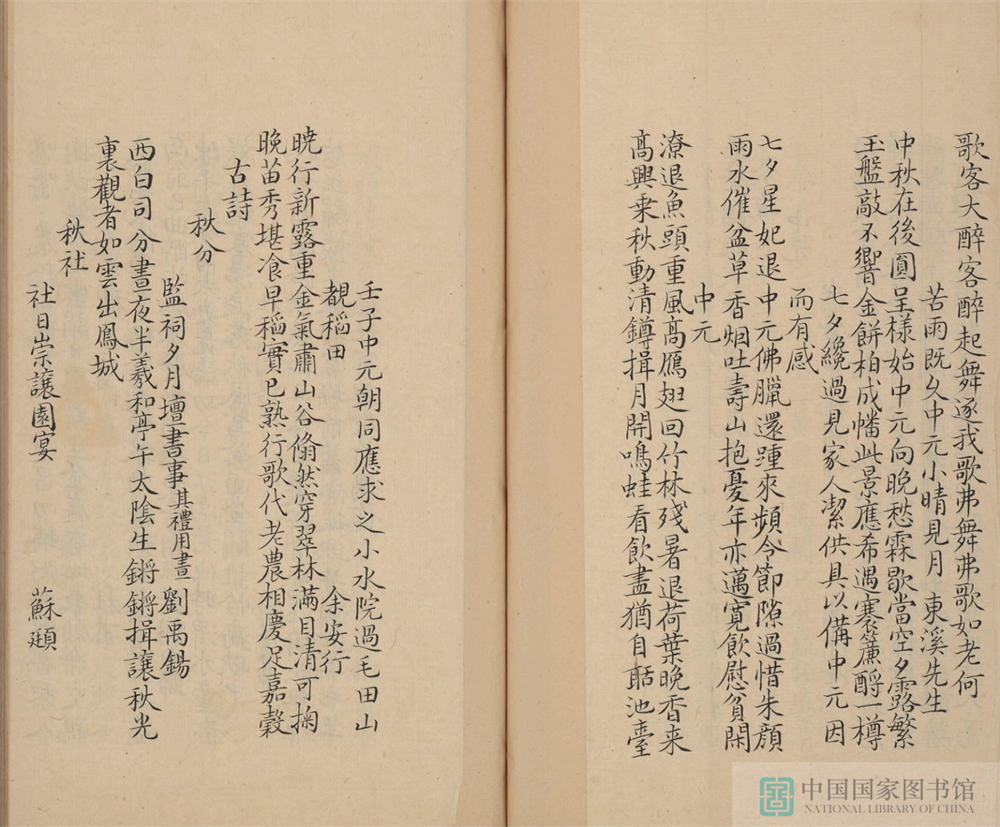 歌客大醉客醉起舞逐我歌弗舞弗歌如老何
苦雨既久中元小晴見月　東溪先生
中秋在後圓呈樣始中元向晚愁霖歇當空夕露繁
玉盤敲不響金餅柏成幡此景應希遇褰簾酹一樽
七夕纔過見家人潔供具以備中元因
而有感
七夕星妃退中元佛臘還踵來頻令節隙過惜朱顔
雨水催盆草香烟吐壽山抱憂年亦邁寬飲慰貧閑
中元
潦退魚頭重風高鴈翅回竹林殘暑退荷葉晚香来
高興乗秋動清鐏揖月開鳴蛙看飲盡猶自聒池臺
壬子中元朝同應求之小水院過毛田山
覩稻田　余安行
曉行新露重金氣肅山谷翛然穿翠林滿目清可掬
晚苗秀堪飡早稻實已熟行歌代老農相慶足嘉穀
古詩
秋分
監祠夕月壇書事其禮用晝　劉禹錫
西白司分晝夜半羲和亭午太陰生鏘鏘揖讓秋光
裏觀者如雲出鳳城
秋社
社日崇讓園宴　蘇頲
中国国家图书馆
NATIONAL LIBRARY OF CHINA